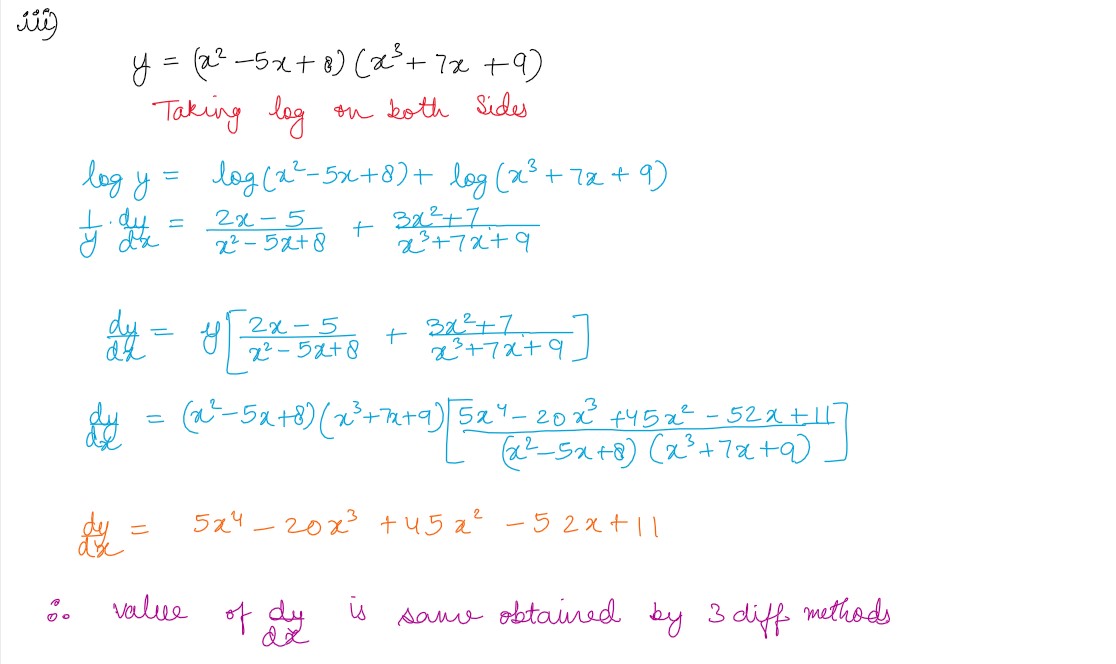 iii)
y = (x² - 5x + 8) (x³ + 7x + 9)
Taking log on both sides
log y = log(x² - 5x + 8) + log(x³ + 7x + 9)
1/y · dy/dx = (2x - 5)/(x² - 5x + 8) + (3x² + 7)/(x³ + 7x + 9)
dy/dx = y[(2x - 5)/(x² - 5x + 8) + (3x² + 7)/(x³ + 7x + 9)]
dy/dx = (x² - 5x + 8)(x³ + 7x + 9)[(5x⁴ - 20x³ + 45x² - 52x + 11)/((x² - 5x + 8) (x³ + 7x + 9))]
dy/dx = 5x⁴ - 20x³ + 45x² - 52x + 11
∴ value of dy/dx is same obtained by 3 diff methods